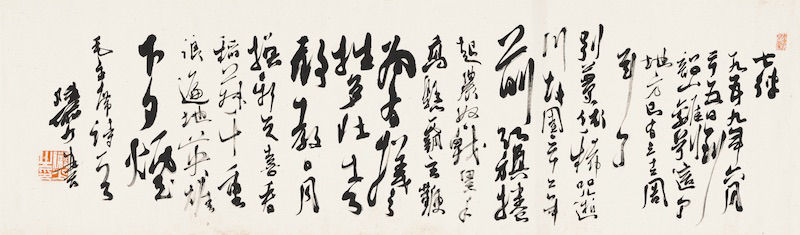 七律
一九五九年六月
二十五日到
韶山離别這个
地方已有三十二周
年了
别夢依稀咒逝
川故園三十二年
前紅旗捲
起農奴戟黑手
高懸霸主鞭
為有犧
牲多壮志
敢教日月
換新天喜看
稻菽千重
浪遍地英雄
下夕煙
毛主席詩一首